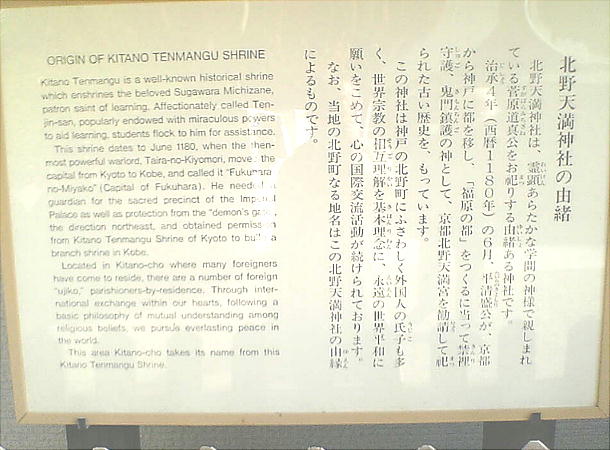 北野天満神社の由緒
北野天満神社は、霊顕あらたかな学問の神様で親しまれ
ている菅原道真公をお祀りする由緒ある神社です。
治承4年（西暦1180年）の6月、平清盛公が、京都
から神戸に都を移し、「福原の都」をつくるに当って禁裡
守護、鬼門鎮護の神として、京都北野天満宮を勧請して祀
られた古い歴史を、もっています。
この神社は神戸の北野町にふさわしく外国人の氏子も多
く、世界宗教の相互理解を基本理念に、永遠の世界平和に
願いをこめて、心の国際交流活動が続けられております。
なお、当地の北野町なる地名はこの北野天満神社の由縁
によるものです。
ORIGIN OF KITANO TENMANGU SHRINE
Kitano Tenmangu is a well-known historical shrine
which enshrines the beloved Sugawara Michizane,
patron saint of learning. Affectionately called Ten-
jin-san, popularly endowed with miraculous powers
to aid learning, students flock to him for assistance.
This shrine dates to June 1180, when the then-
most powerful warlord, Taira-no-Kiyomori, moved the
capital from Kyoto to Kobe, and called it "Fukuhara-
no-Miyako" (Capital of Fukuhara). He needed a
guardian for the sacred precinct of the Imperial
Palace as well as protection from the "demon's gate",
the direction northeast, and obtained permission
from Kitano Tenmangu Shrine of Kyoto to build a
branch shrine in Kobe.
Located in Kitano-cho where many foreigners
have come to reside, there are a number of foreign
"ujiko," parishioners-by-residence. Through inter-
national exchange within our hearts, following a
basic philosophy of mutual understanding among
religious beliefs, we pursue everlasting peace in
the world.
This area Kitano-cho takes its name from this
Kitano Tenmangu Shrine.